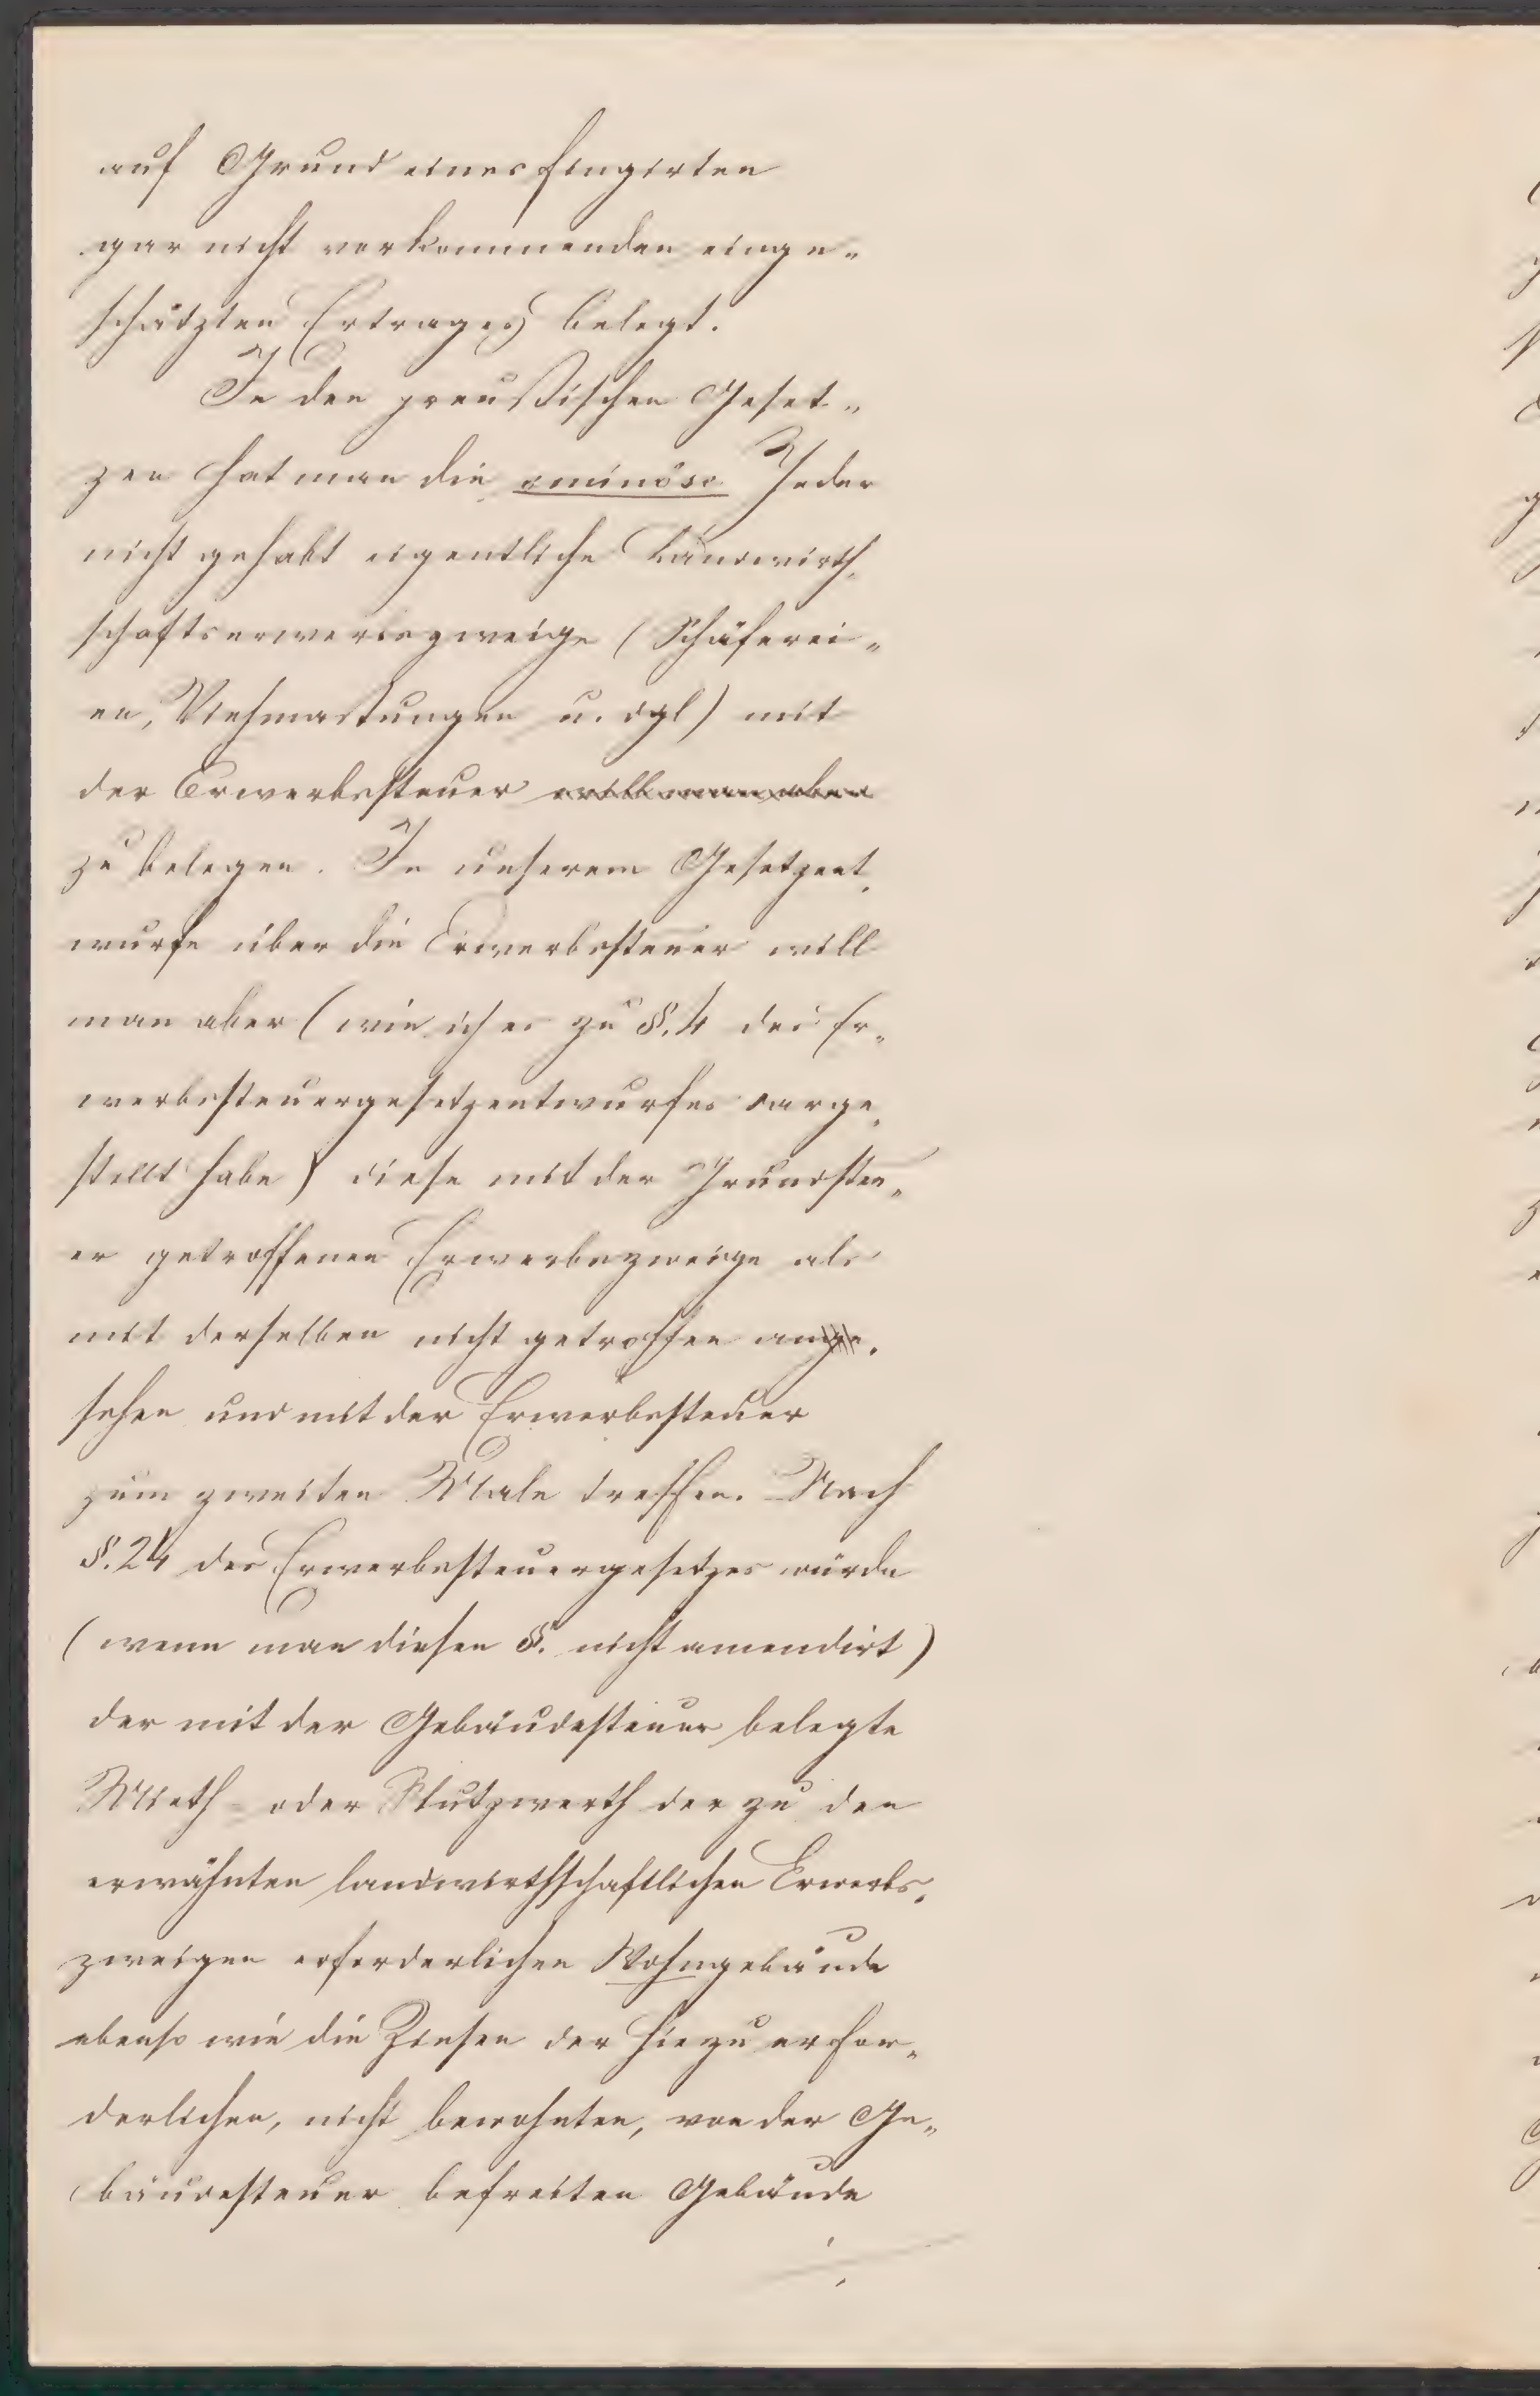 auf Grund eines fingirten
gar nicht vorkommenden einge„
schätzten Ertrages belegt.
In den preußischen Geset„
zen hat man die ominöse Idee
nicht gehabt eigentliche Landwirth„
schaftserwerbszweige (Schäferei„
en, Viehmastungen u. dgl) mit
der Erwerbsteuer will man aber
zu belegen. In unserem Gesetzent„
wurfe über die Erwerbsteuer will
man aber (wie ich es zu §. 4 des Er„
werbesteuergesetzentwurfes darge„
stellt habe) diese mit der Grundsteu„
er getroffenen Erwerbszweige als
mit derselben nicht getroffen ange„
sehen und mit der Erwerbsteuer
zum zweiten Male treffen. Nach
§. 24 des Erwerbesteuergesetzes würde
(wenn man diesen §. nicht amendirt)
der mit der Gebäudesteuer belegte
Mieth- oder Nutzwerth der zu den
erwähnten landwirthschaftlichen Erwerbs„
zweigen erforderlichen Wohngebäude
ebenso wie die Zinsen der hiezu erfor„
derlichen, nicht bewohnten, von der Ge„
bäudesteuer befreiten Gebäude